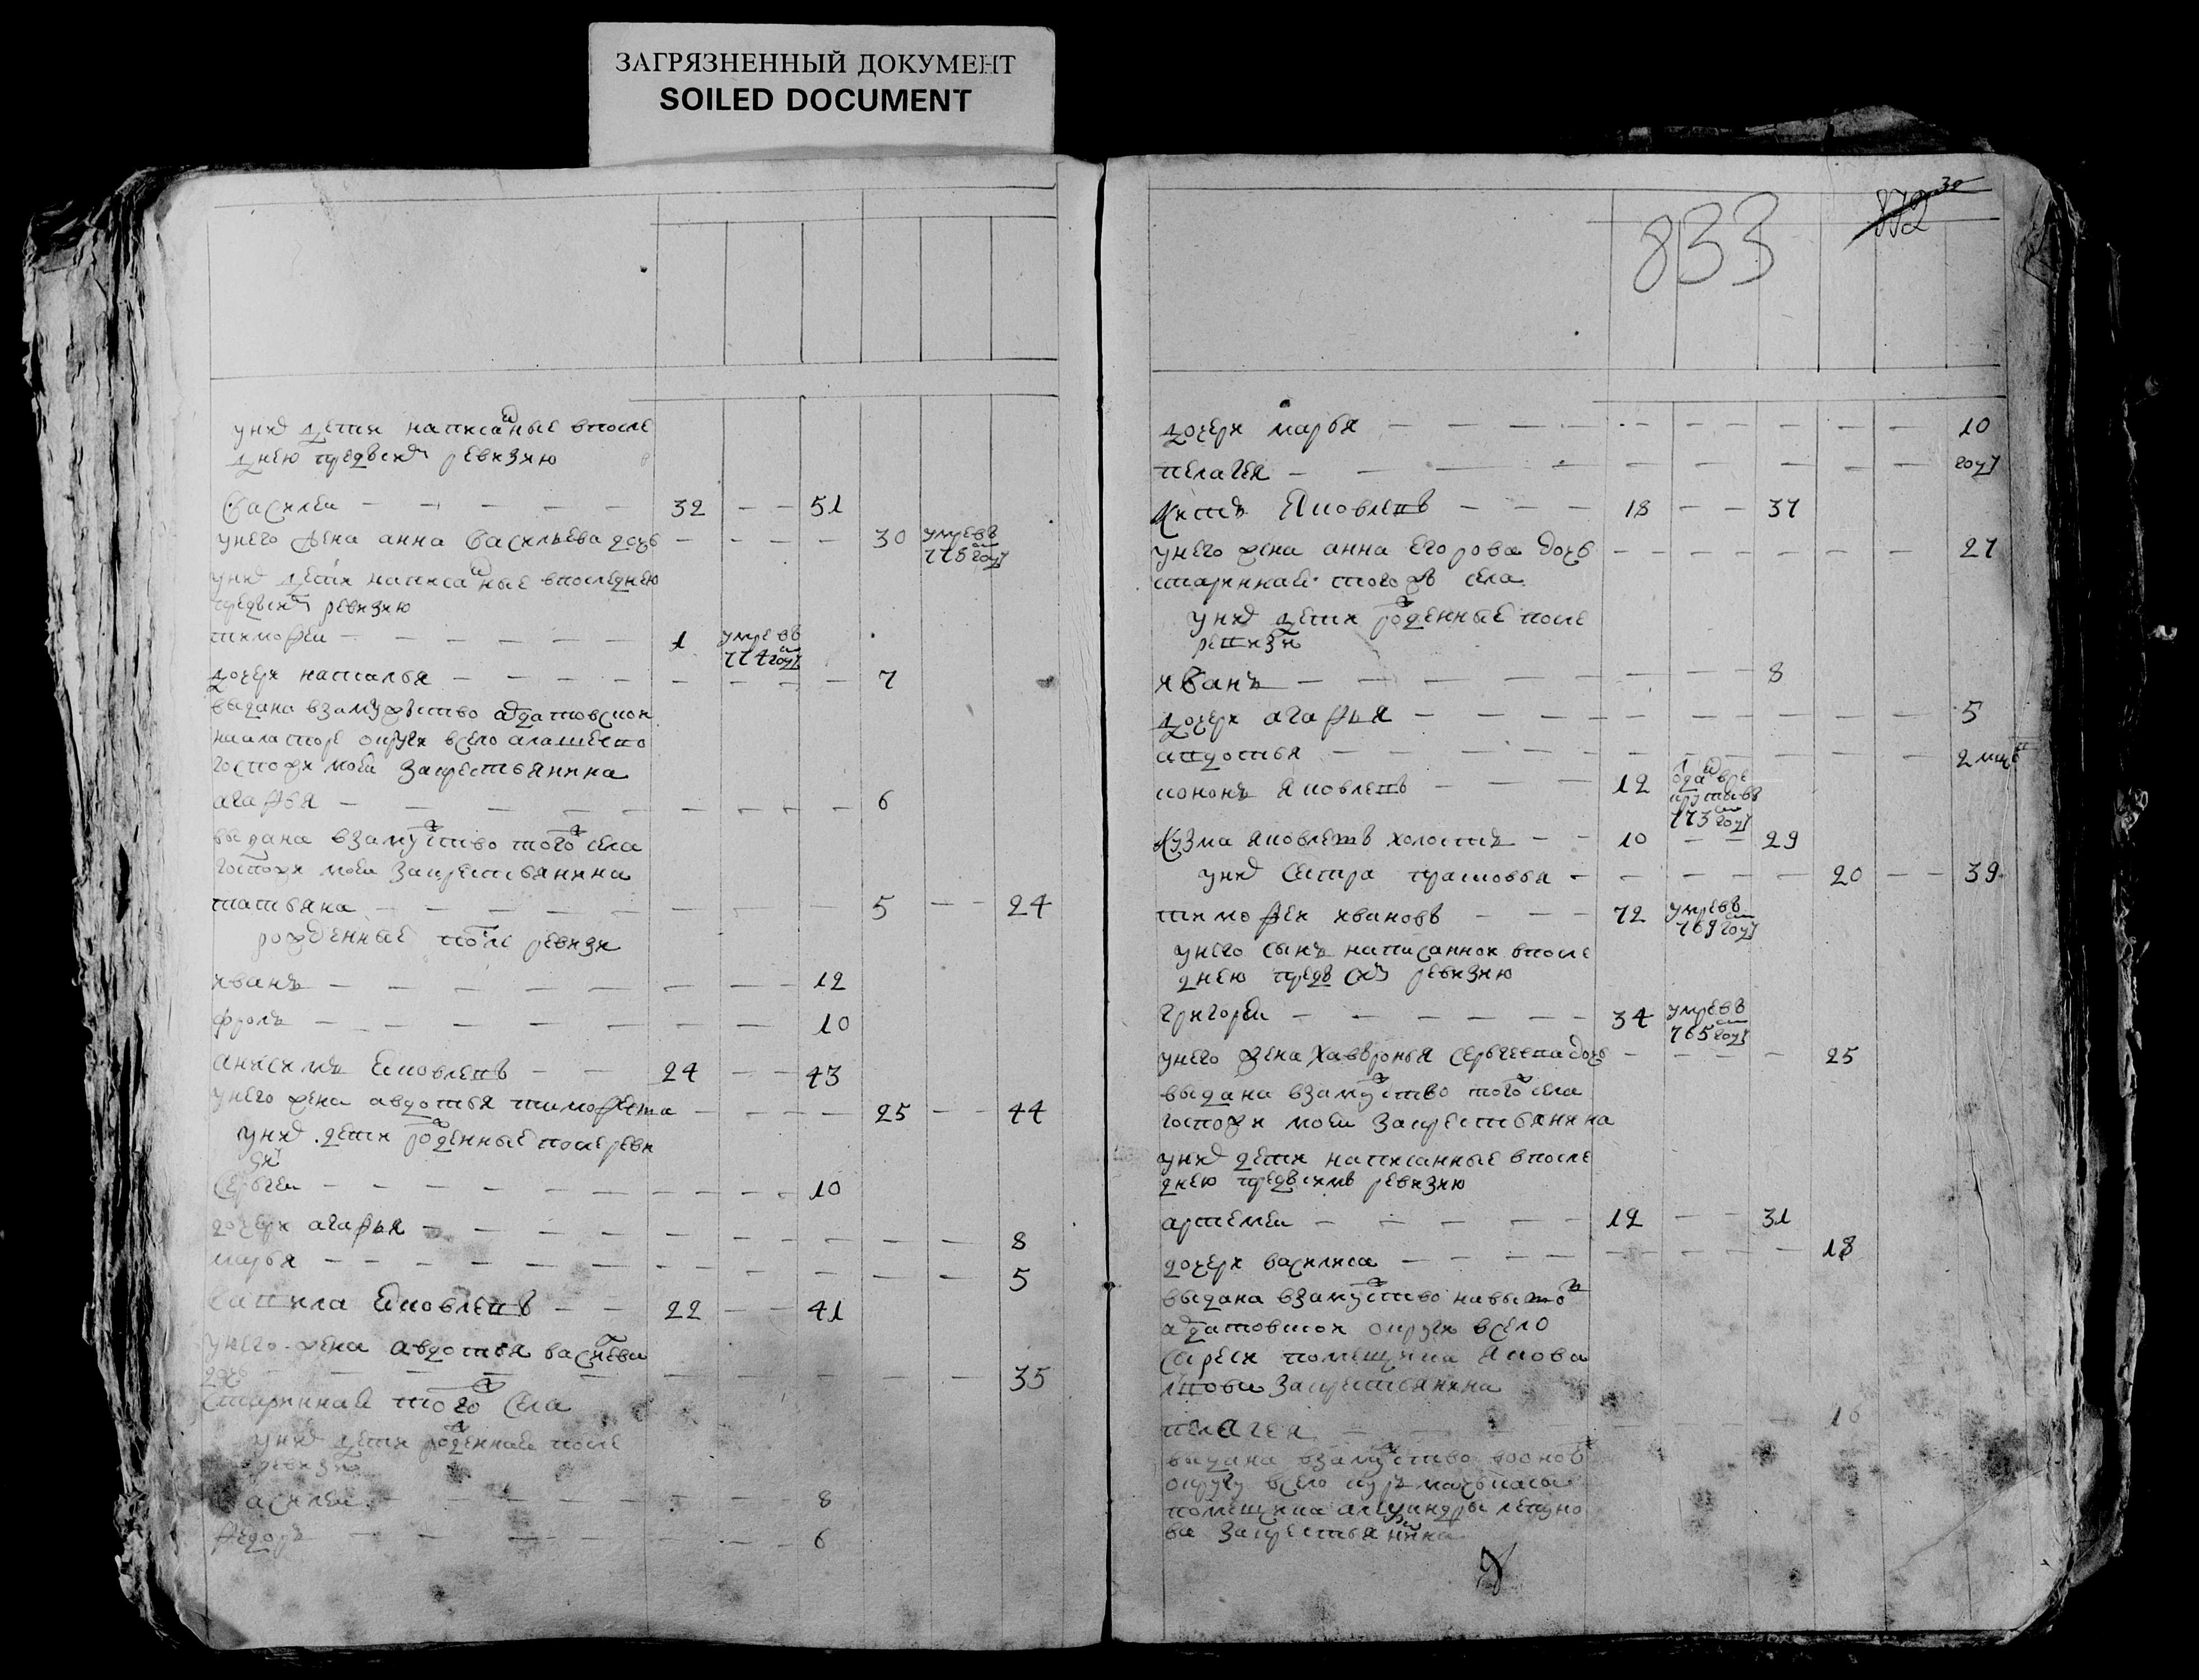 ЗАГРЯЗНЕННЫЙ ДОКУМЕНТ
SOILED DOCUMENT
у них дети написанные впосле
днею пред сим ревизию
василеи 32 51
унего жена анна васильева дочь 30 умре в 775 году
у них дети написанные впоследнею
пред сим ревизию
тимофеи 1 умре в 774 году
дочери наталья 7
выдана взамужъство
округи всело
господи моеи за крестьянина
агафья 6
выдана взамуство того села
господи моеи за крестьянина
татьяна 5 24
рожденные после ревизи
иванъ 12
фролъ 10
анисимъ яковлевъ 24 43
унего жена авдотья тимофеева 25 44
у них дети роденные после реви
зи
сергеи 10
дочери агафья 8
марья 5
яковлевъ 22 41
унего жена авдотья
дочь 35
стариннае того села
у них дети роденнаи после
ревизи
василеи 8
федоръ 6
833
872
30
дочери марья 10
пелагея году
яковлевъ 18 37
унего жена анна егорова дочь 27
стариннаи того жъ села
у них дети роденные после
ревизи
иванъ 8
дочери агафья 5
авдотья 2
кононъ яковлевъ 12 773 году
кузма яковлевъ холостъ 10 29
у них сестра прасковья 20 39
тимофеи ивановъ 72 умре в 769 году
унего сынъ написаннои впосле
днею пред сим ревизию
григореи 34 умре в 765 году
унего жена хавронья сергеева дочь 25
выдана взамуство того села
господи моеи за крестьянина
у них дети написанные впосле
днею пред симъ ревизию
артемеи 12 31
дочери василиса 18
выдана взамуство
округи всело
помещика якова
за крестьянина
пелагея 16
выдана взамуство
округу всело
помещика
за крестьянина